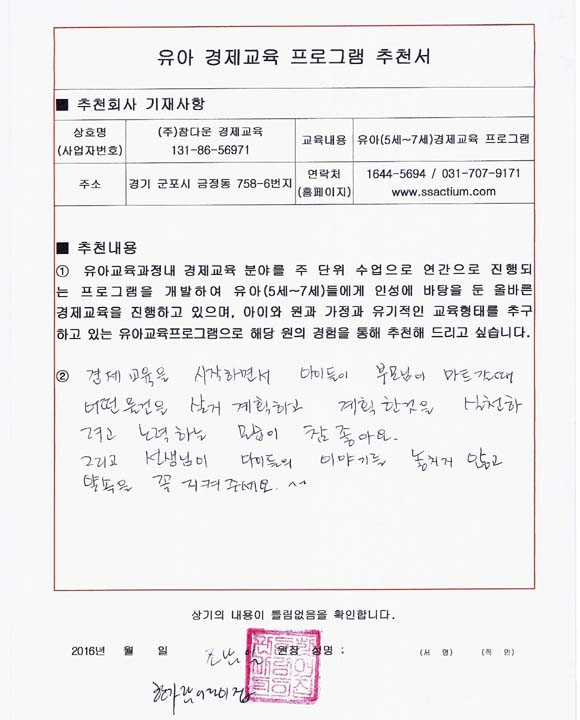 유아 경제교육 프로그램 추천서
■ 추천회사 기재사항
상호명 (사업자번호) (주)참다운 경제교육 131-86-56971 교육내용 유아(5세~7세)경제교육 프로그램
주소 경기 군포시 금정동 758-6번지 연락처 (홈페이지) 1644-5694 / 031-707-9171 www.ssactium.com
■ 추천내용
① 유아교육과정내 경제교육 분야를 주 단위 수업으로 연간으로 진행되
는 프로그램을 개발하여 유아(5세~7세)들에게 인성에 바탕을 둔 올바른
경제교육을 진행하고 있으며, 아이와 원과 가정과 유기적인 교육형태를 추구
하고 있는 유아교육프로그램으로 해당 원의 경험을 통해 추천해 드리고 싶습니다.
② 경제교육을 시작하면서 아이들이 부모님이 마트갈때
어떤 물건을 살지 계획하고 계획한것을 실천하
려고 노력하는 모습이 참 좋아요.
그리고 선생님이 아이들의 이야기를 놓치지 않고
약속을 꼭 지켜주세요.
상기의 내용이 틀림없음을 확인합니다.
2016년 월 일 원장 성명 : (서 명) (직 인)
어린이집